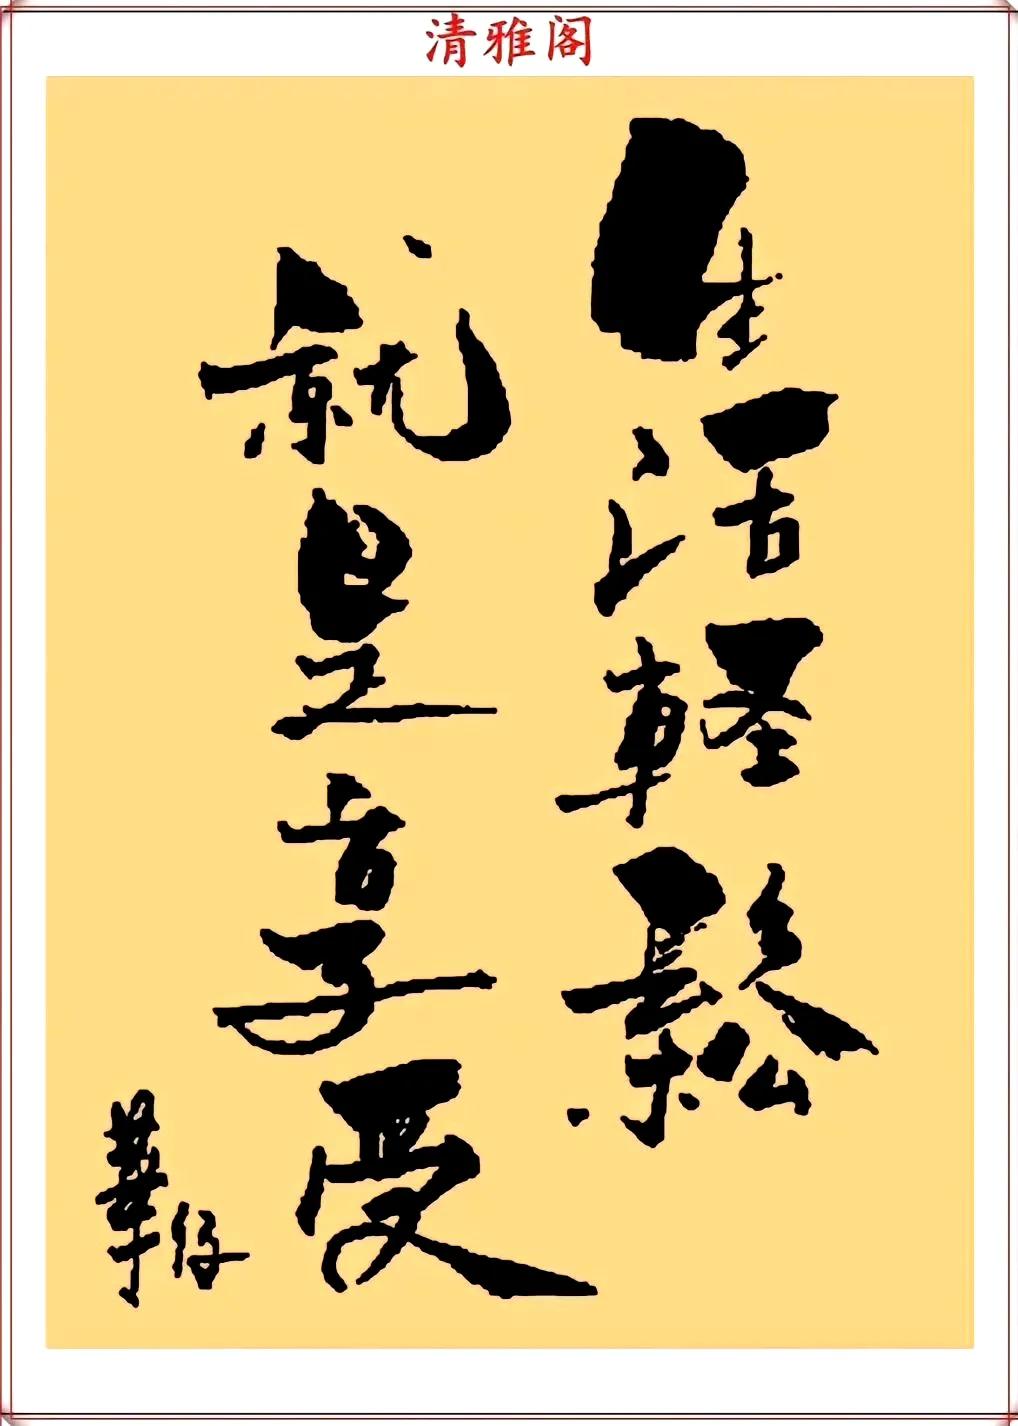 清雅阁
生活軽鬆
就是享受
華仔